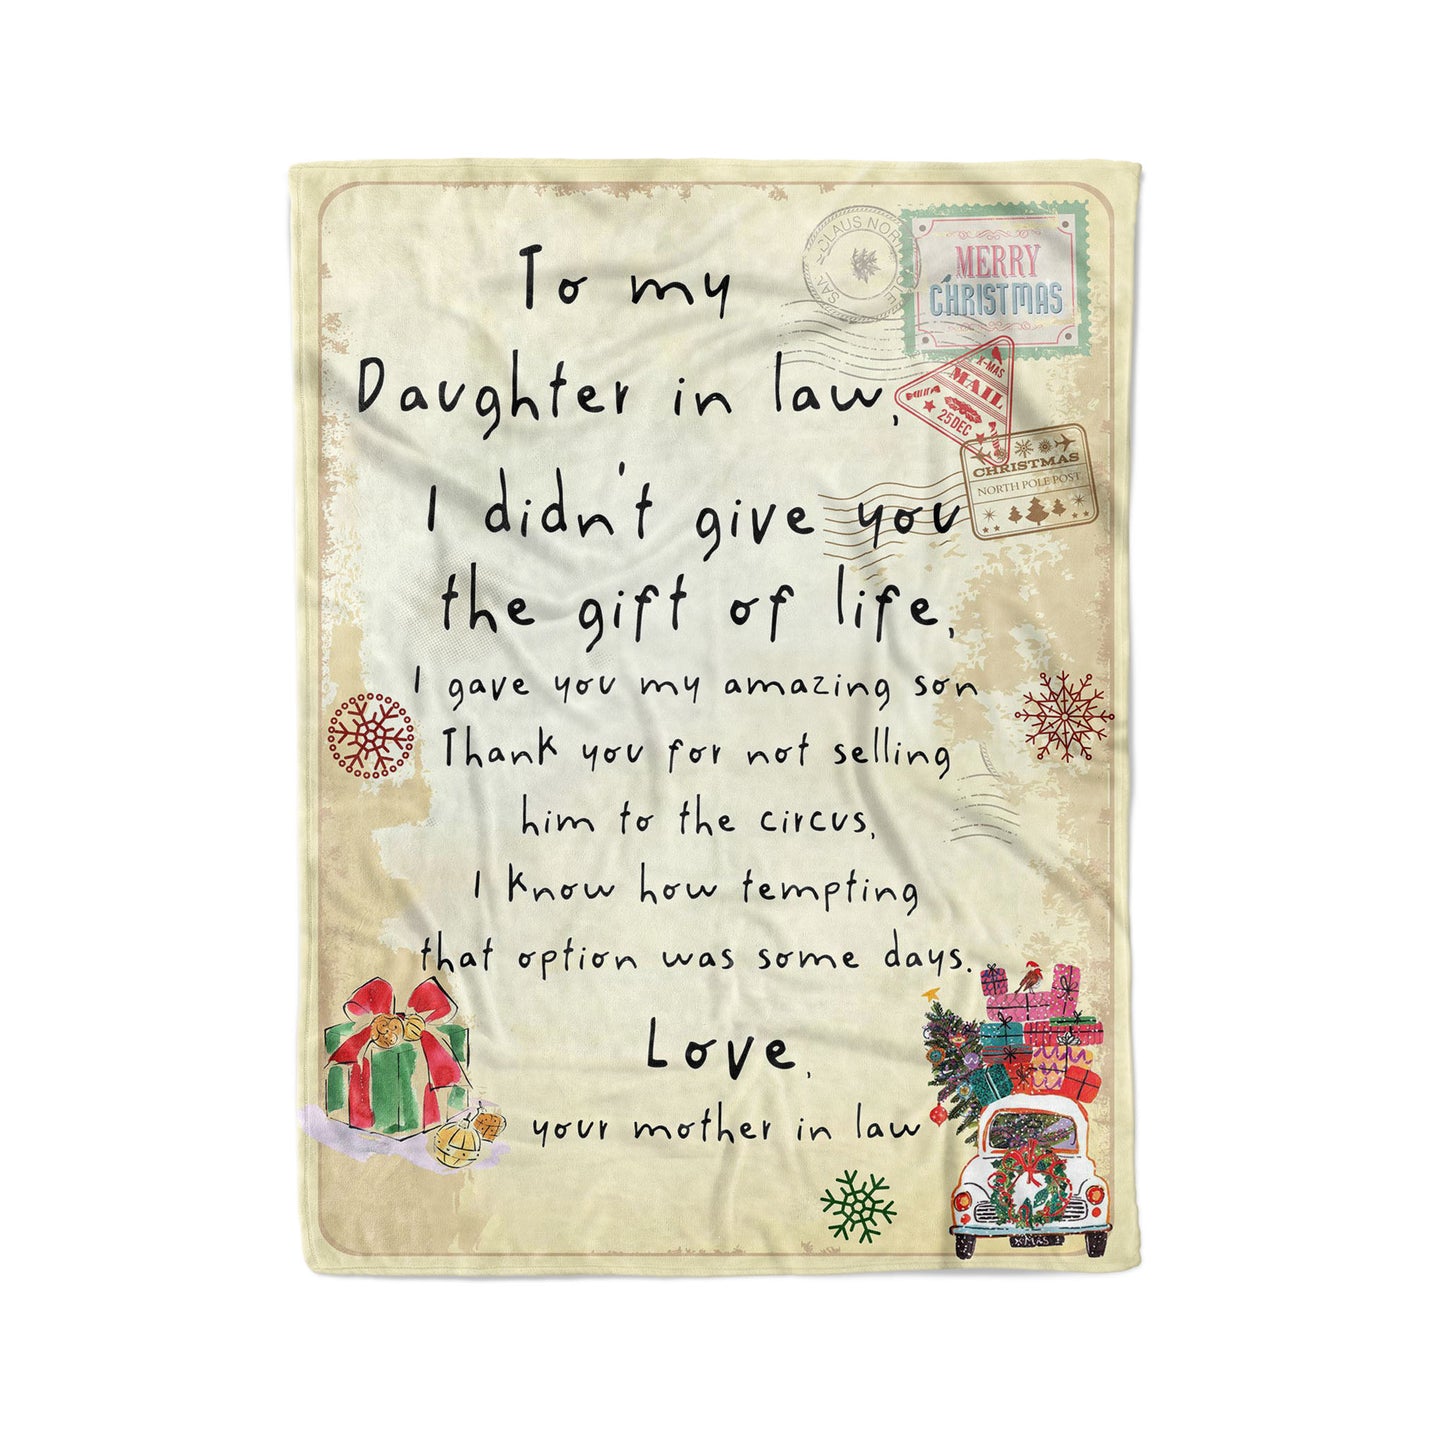 SANTA CLAUS NORTH POLE
MERRY
CHRISTMAS
To my
Daughter in law,
X-MAS
MAIL
25 DEC
I didn't give you
CHRISTMAS
NORTH POLE POST
the gift of life,
I gave you my amazing son
Thank you for not selling
him to the circus,
I know how tempting
that option was some days.
Love,
your mother in law
X-MAS